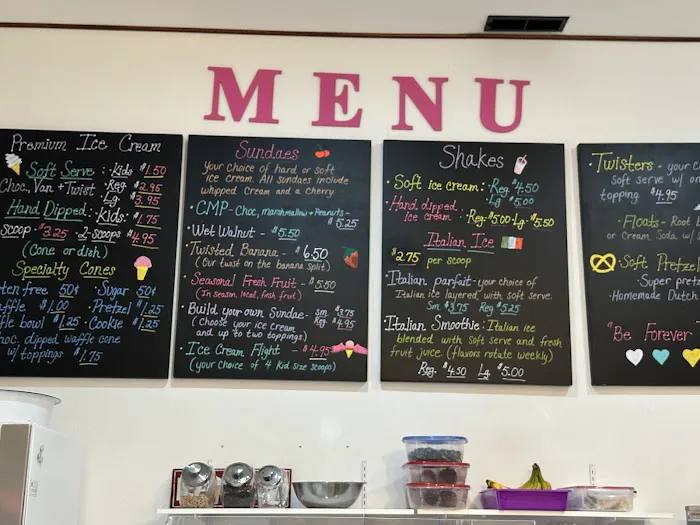 MENU
Premium Ice Cream
Soft Serve: Kids $1.50
Choc, Van + Twist Reg $2.95
Lg $3.95
Hand Dipped: Kids: $1.75
scoop - $3.25 2-scoops $4.95
(Cone or dish)
Specialty Cones
free 50¢ · Sugar 50¢
$1.00 · Pretzel $1.25
bowl $1.25 · Cookie $1.25
dipped waffle cone
w/ toppings $1.75
Sundaes
Your choice of hard or soft
ice cream. All sundaes include
whipped cream and a cherry.
· CMP - Choc, marshmallow + Peanuts - $5.25
· Wet Walnut - $5.50
· Twisted Banana - $6.50
(our twist on the banana split)
· Seasonal Fresh Fruit - $5.50
(In season, local, fresh fruit)
· Build your own Sundae - sm $3.75
(choose your ice cream Reg $4.95
and up to two toppings)
· Ice Cream Flight - $4.95
(your choice of 4 Kid size scoops)
Shakes
· Soft ice cream: Reg $4.50
Lg $5.00
· Hand dipped
ice cream - Reg $5.00 Lg $5.50
Italian Ice
$2.75 per scoop
· Italian parfait - your choice of
Italian ice layered with soft serve.
Sm $3.75 Reg $5.25
· Italian Smoothie: Italian ice
blended with soft serve and fresh
fruit juice (flavors rotate weekly)
Reg. $4.50 Lg $5.00
· Twisters - your
soft serve w/
topping $4.95
· Floats - Root
or Cream Soda
· Soft Pretzel
· Super
· Homemade
"Be Forever